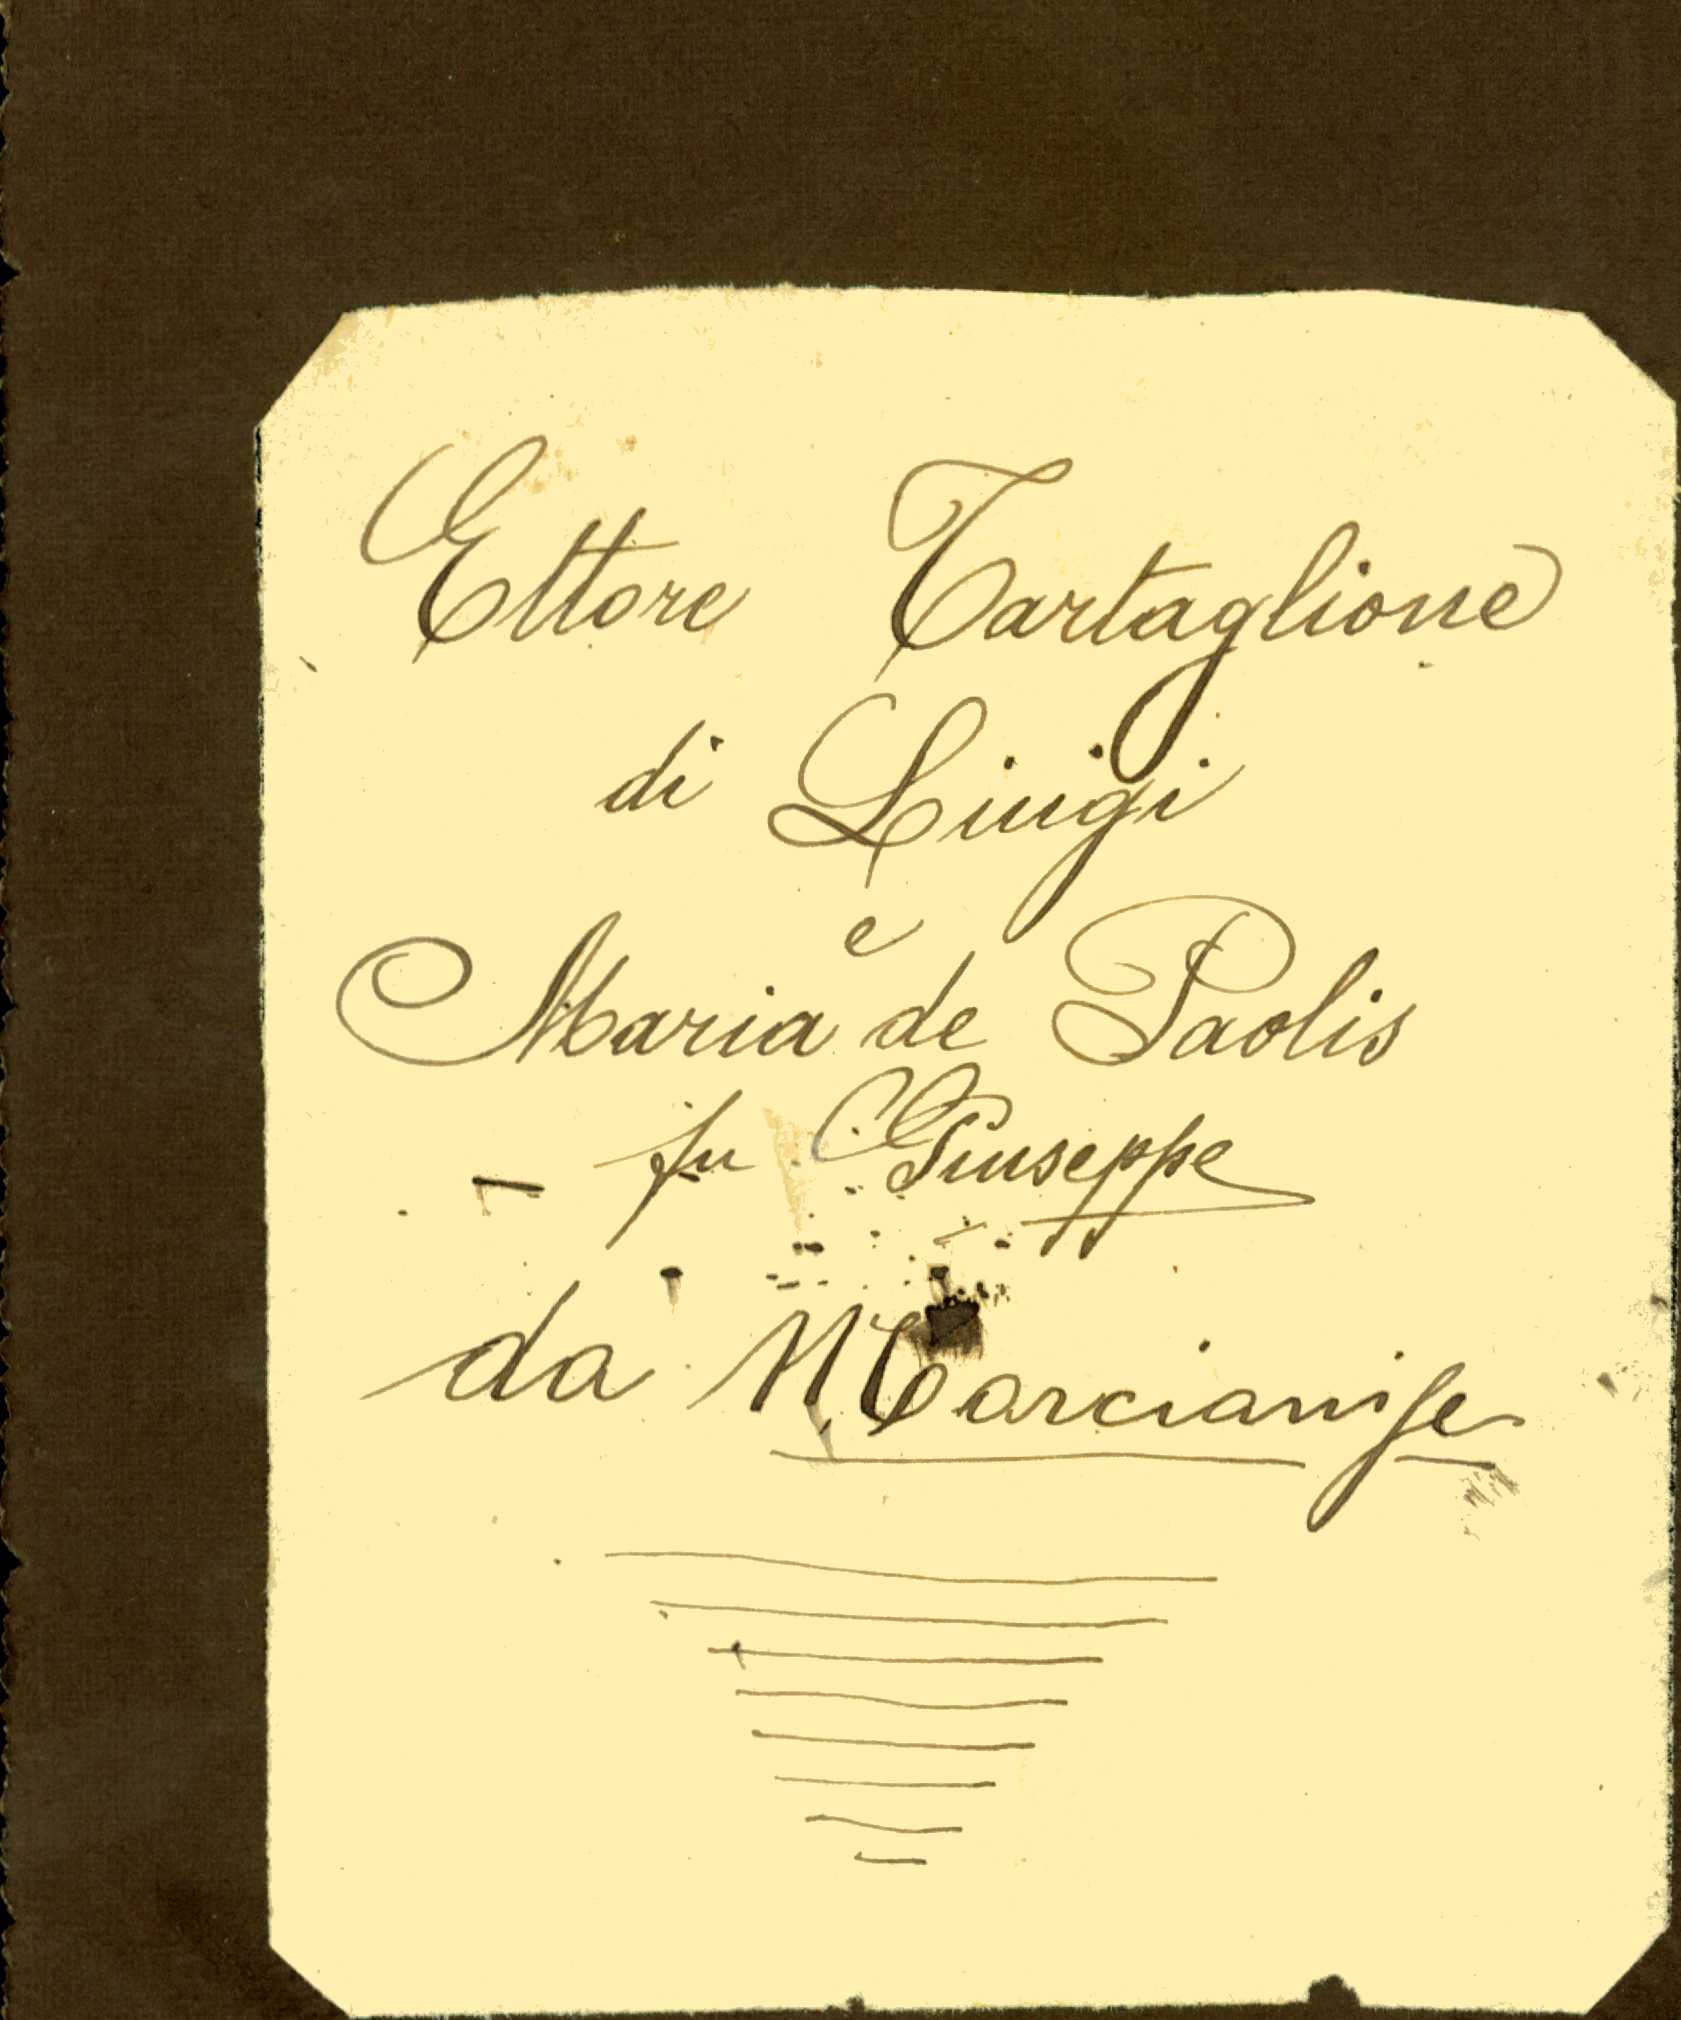 Ettore Tartaglione
di Luigi
e
Maria de Paolis
fu Giuseppe
da Marcianise